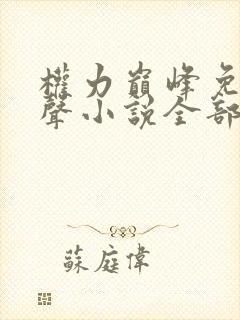 權力巔峰免
聲小說全部
蘇庭偉